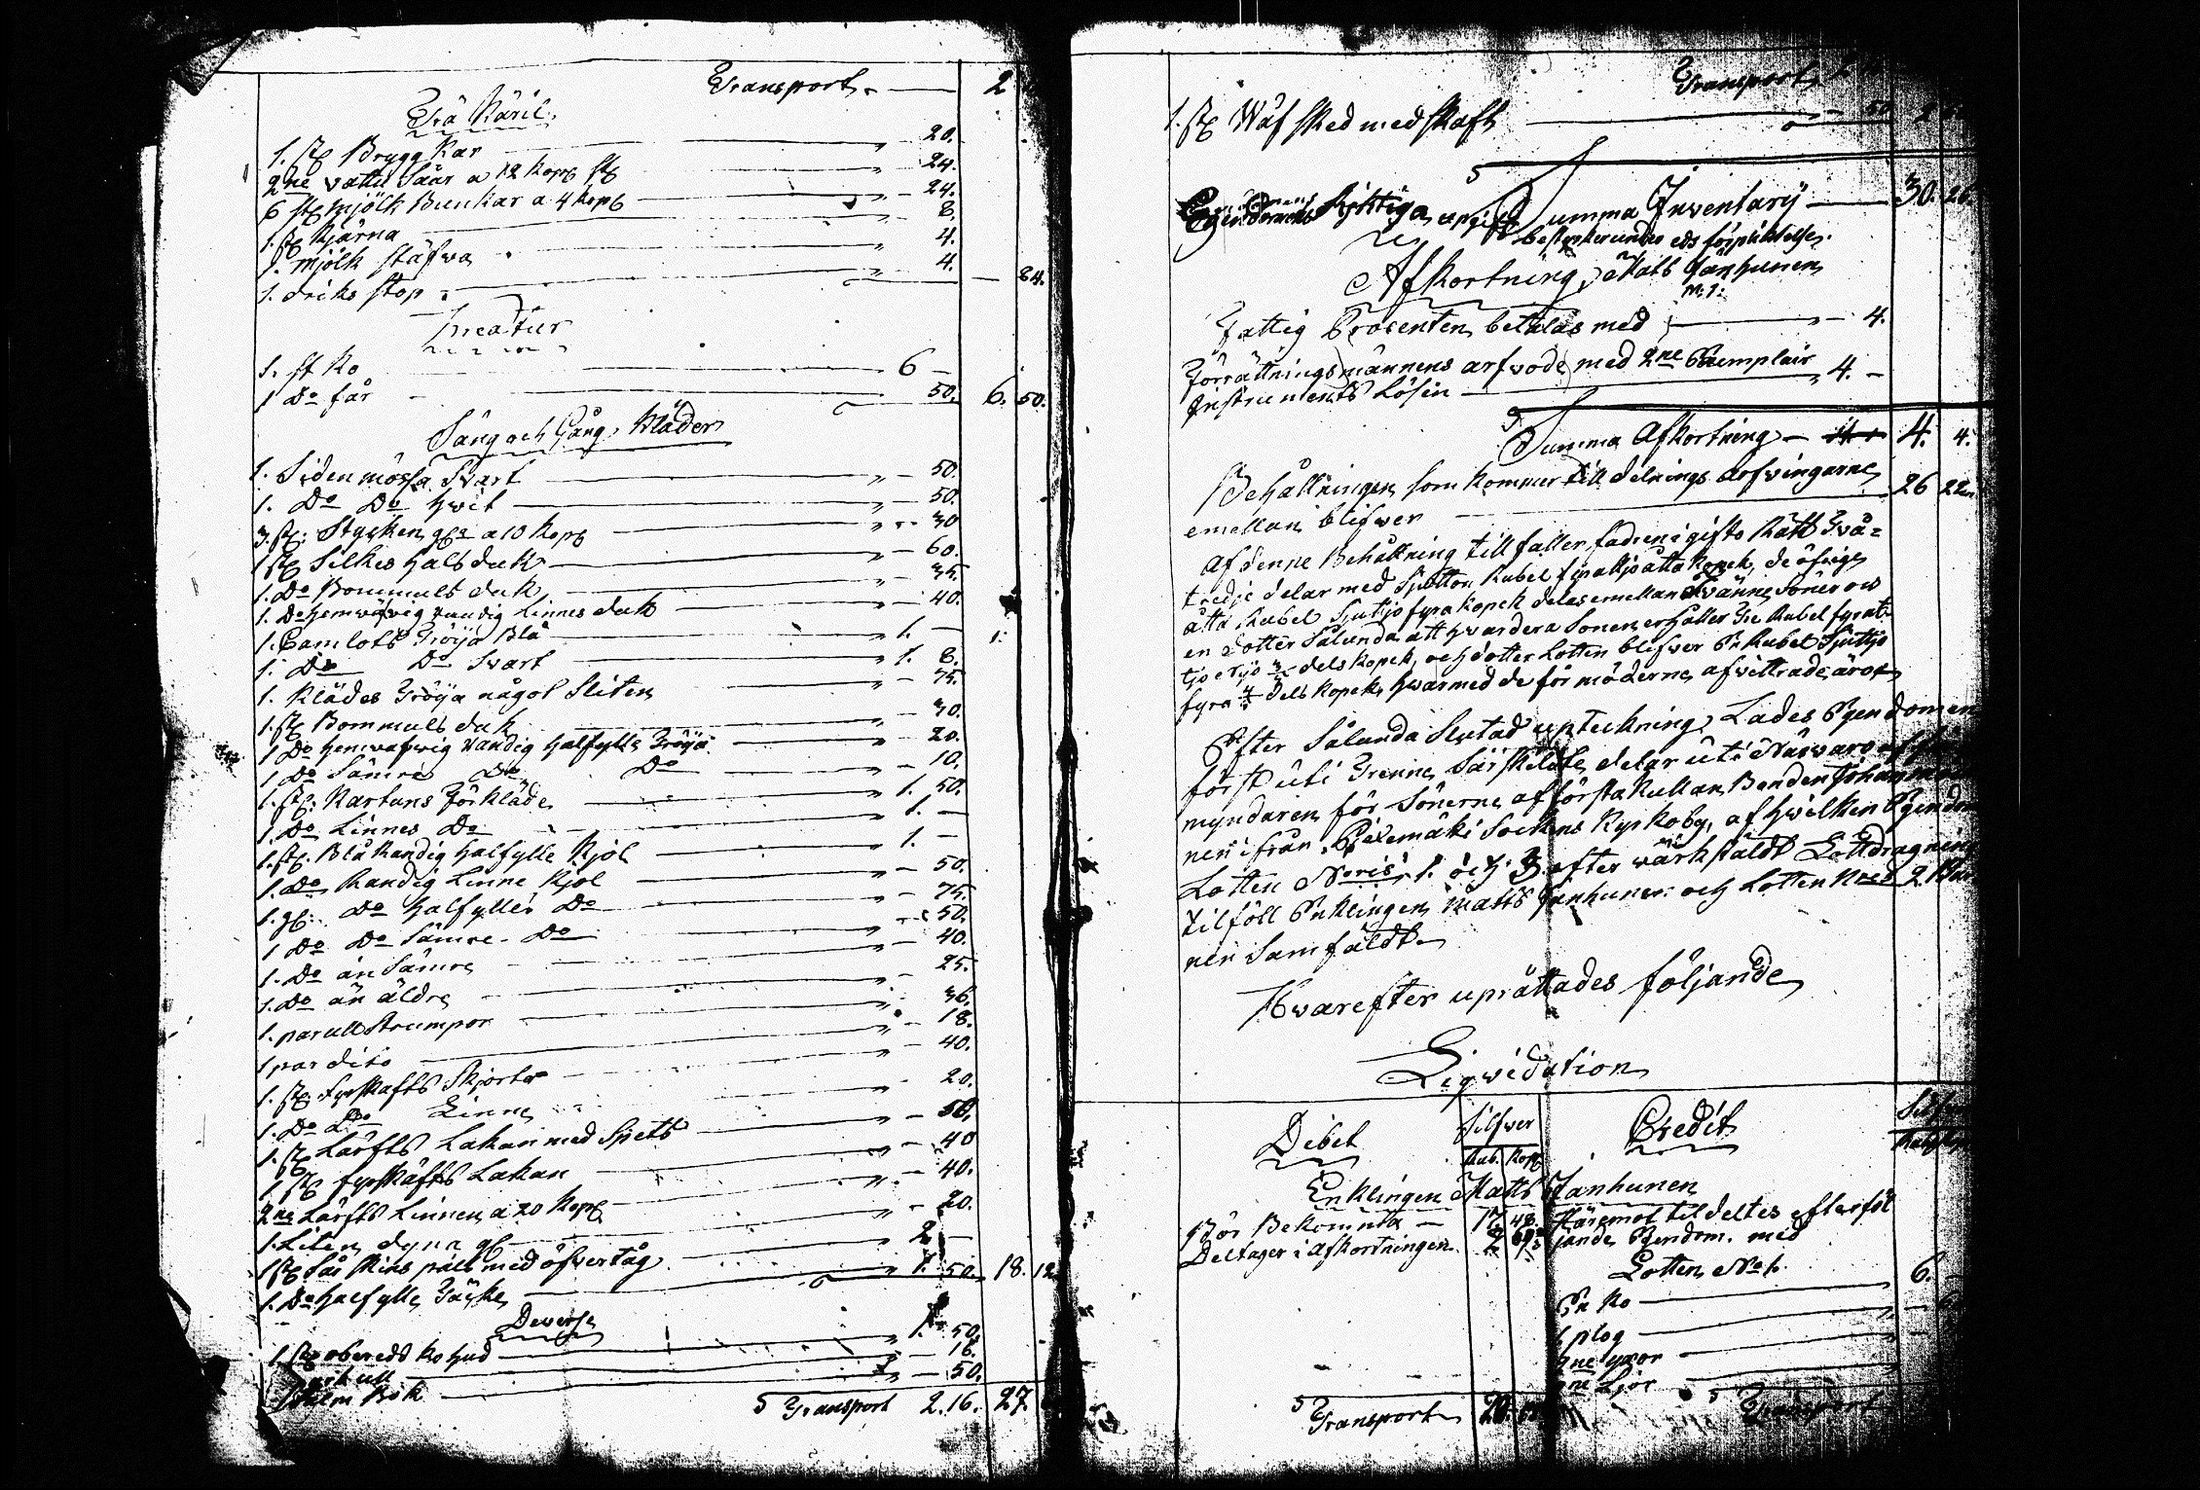 Transport. — 2
Trä Käril.
1. st. Brygg Kar — 20.
2ne vattu Såar a 12 Kop st — 24.
6 st Mjölk Bunkar a 4 Kop — 24.
1. st Kjärna — 8.
1. Mjölk Stäfva — 4.
1. driks stop — 4. — 84.
Kreatur
1. st Ko — 6 —
1 Do får — 50. 6. 50.
Säng och Gång Kläder
1. Siden mössa Svart — 50.
1. Do Do hvit — 50.
3. st. Stycken a 10 Kop — 30
1 st Silkes Halsduk — 60.
1. Do Bommuls duk — 35.
1. Do hemväfvig randig Linnes duk — 40.
1. Camlots Tröja Blå — 1. —
1. Do Do Svart — 1. 8.
1. Klädes Tröja något Sliten — 75.
1. st Bommuls duk — 30.
1 Do hemväfvig Randig halfylle Tröja — 20.
1 Do Sämre Do Do — 10.
1. st. Kartuns Förkläde — 1. 50.
1. Do Linnes Do — 1. —
1. st. Blå Randig halfylle Kjol — 1. —
1. Do Randig Linne Kjol — 50.
1. Do halfylles Do — 75.
1 Do Do Sämre Do — 50.
1. Do än Sämre — 40.
1. Do än äldre — 25.
1. par ull Strumpor — 36.
1 par dito — 18.
1. st. fyrskafts Skjorta — 40.
1. Do Do Linne — 20.
1. st Lärfts Lakan med Spets — 50.
1 st fyrskäfts Lakan — 40
2ne Lärfts Linnen a 20 Kop — 40.
1. Liten dyna — 20.
1 st Får Skins päls med öfvertåg — 2 —
1. Do halfylle Täcke — 1. 50. 18. 12
Diverse
1. st oberedd Ko hud — 1. 50.
ull — 16.
Psalm Bok — 50.
Transport 2. 16. 27
Transport
1. st Wäf sked med skaft — 50
Summa Inventarij — 30. 26
Egendomens riktiga upgift bestyrker under eds förpliktelse.
Afkortning, Matts Janhunen
M: J:
Fattig Procenten betalas med — 4.
Förrättningsmännens arfvode med 2ne Exemplair
Instruments Lösen — 4. —
Summa Afkortning — 4. 4.
Behållningen som kommer till delnings Arfvingarne
emellan blifver — 26 22
Af denne Behållning tillfaller fadren i gifto Rätt Två=
tredje delar med Sjutton Rubel fyratjoåtta Kopek, de öfrige
åtta Rubel Sjutijo fyra Kopek delas emellan Tvänne Söner och
en dotter Sålunda att hvardera Sonen erhåller Tre Rubel fyrati-
tjo dels Kopek, och dotter Lotten blifver En Rubel Sjuttijo
fyra dels Kopek, hvarmed de för möderne afvittrade äro
Efter Sålunda Slutad upteckning, Lades Egendomen
först uti Trenne Särskildte delar uti Närvaro af
myndaren för Sönerne af första Kullan Bonden Johan
nen ifrån Pielemäki Sockens Kyrkoby, af hvilken Egendom
Lotten Noris 1. och 3 efter värkstäldt Lottdragning
tilföll Enklingen Matts Janhunen och Lotten No 2
nen Samfäldt
Hvarefter uprättades följande
Liqvidation
Debet Silfver Credit Silfver
Rub. Kop
Enklingen Matts Janhunen
Bör Bekomma — 17 48. Häremot tildeltes efterföl
Deltager i afkortningen jande Egendom. med
Lotten No 1.
En Ko — 6.
1 plog —
2ne yxor —
2ne Ljor
Transport Transport